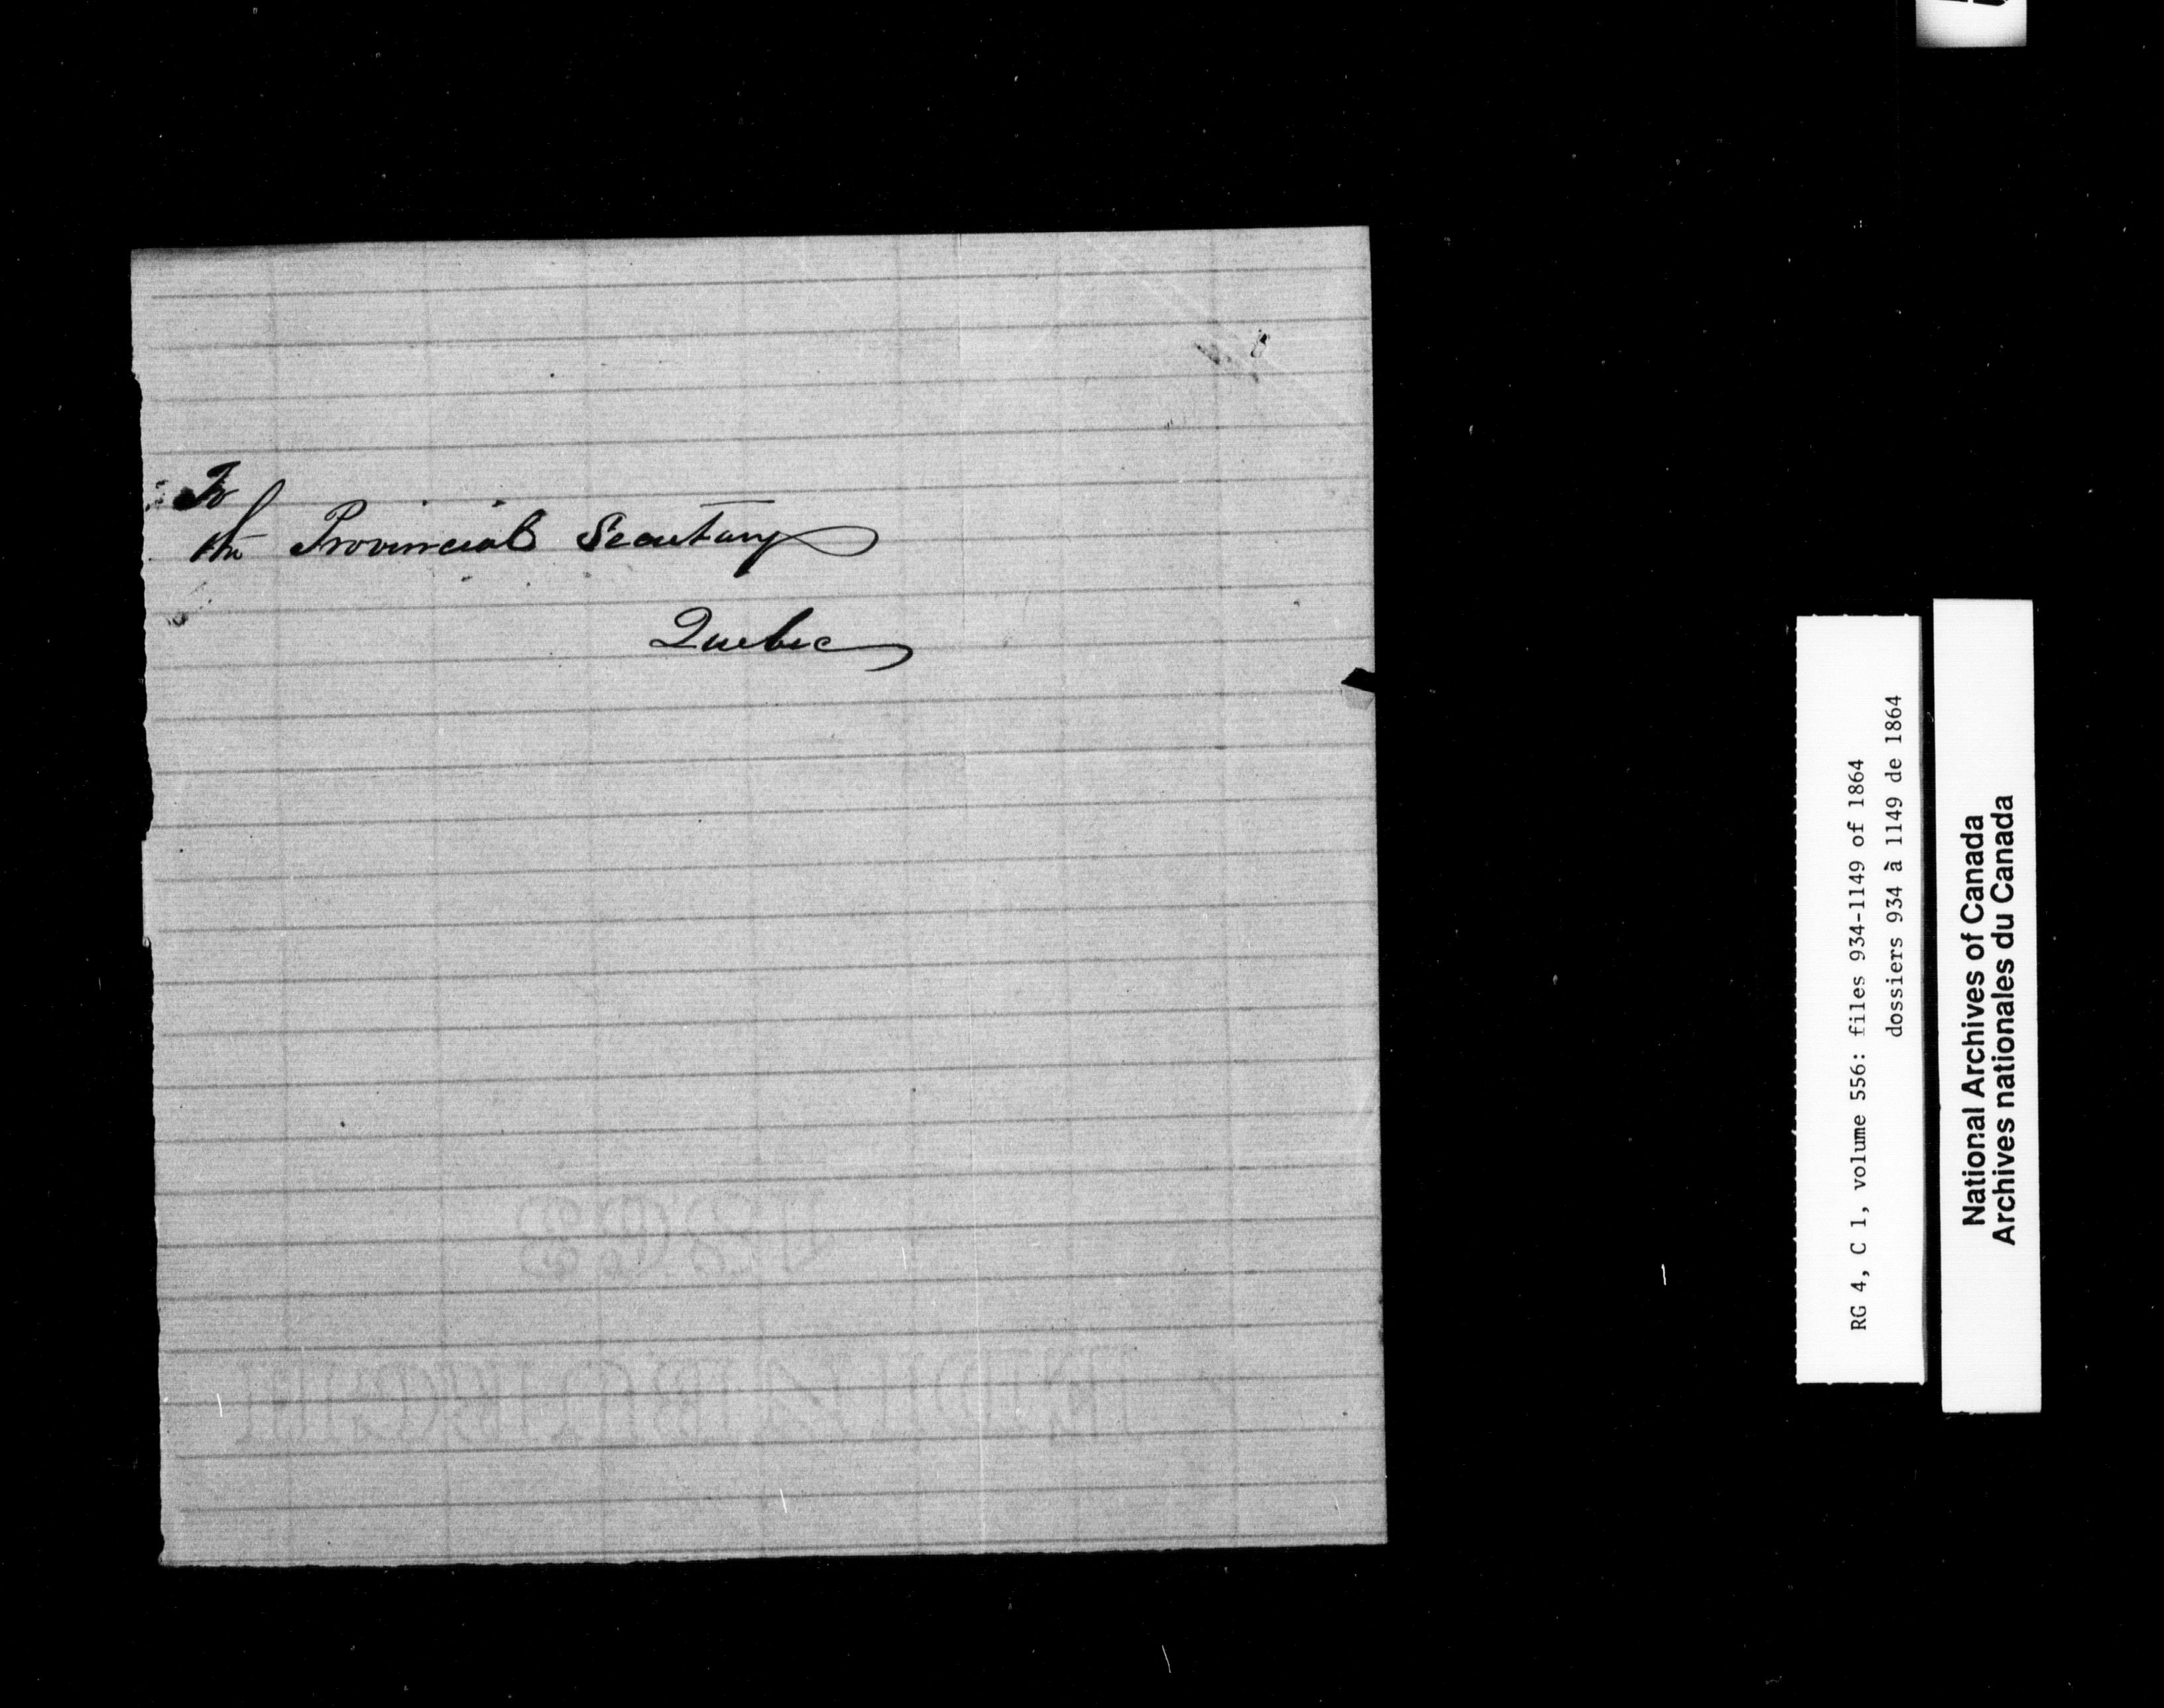 To
the Provincial Secretary
Quebec
RG 4, C 1, volume 556: files 934-1149 of 1864
dossiers 934 à 1149 de 1864
National Archives of Canada
Archives nationales du Canada